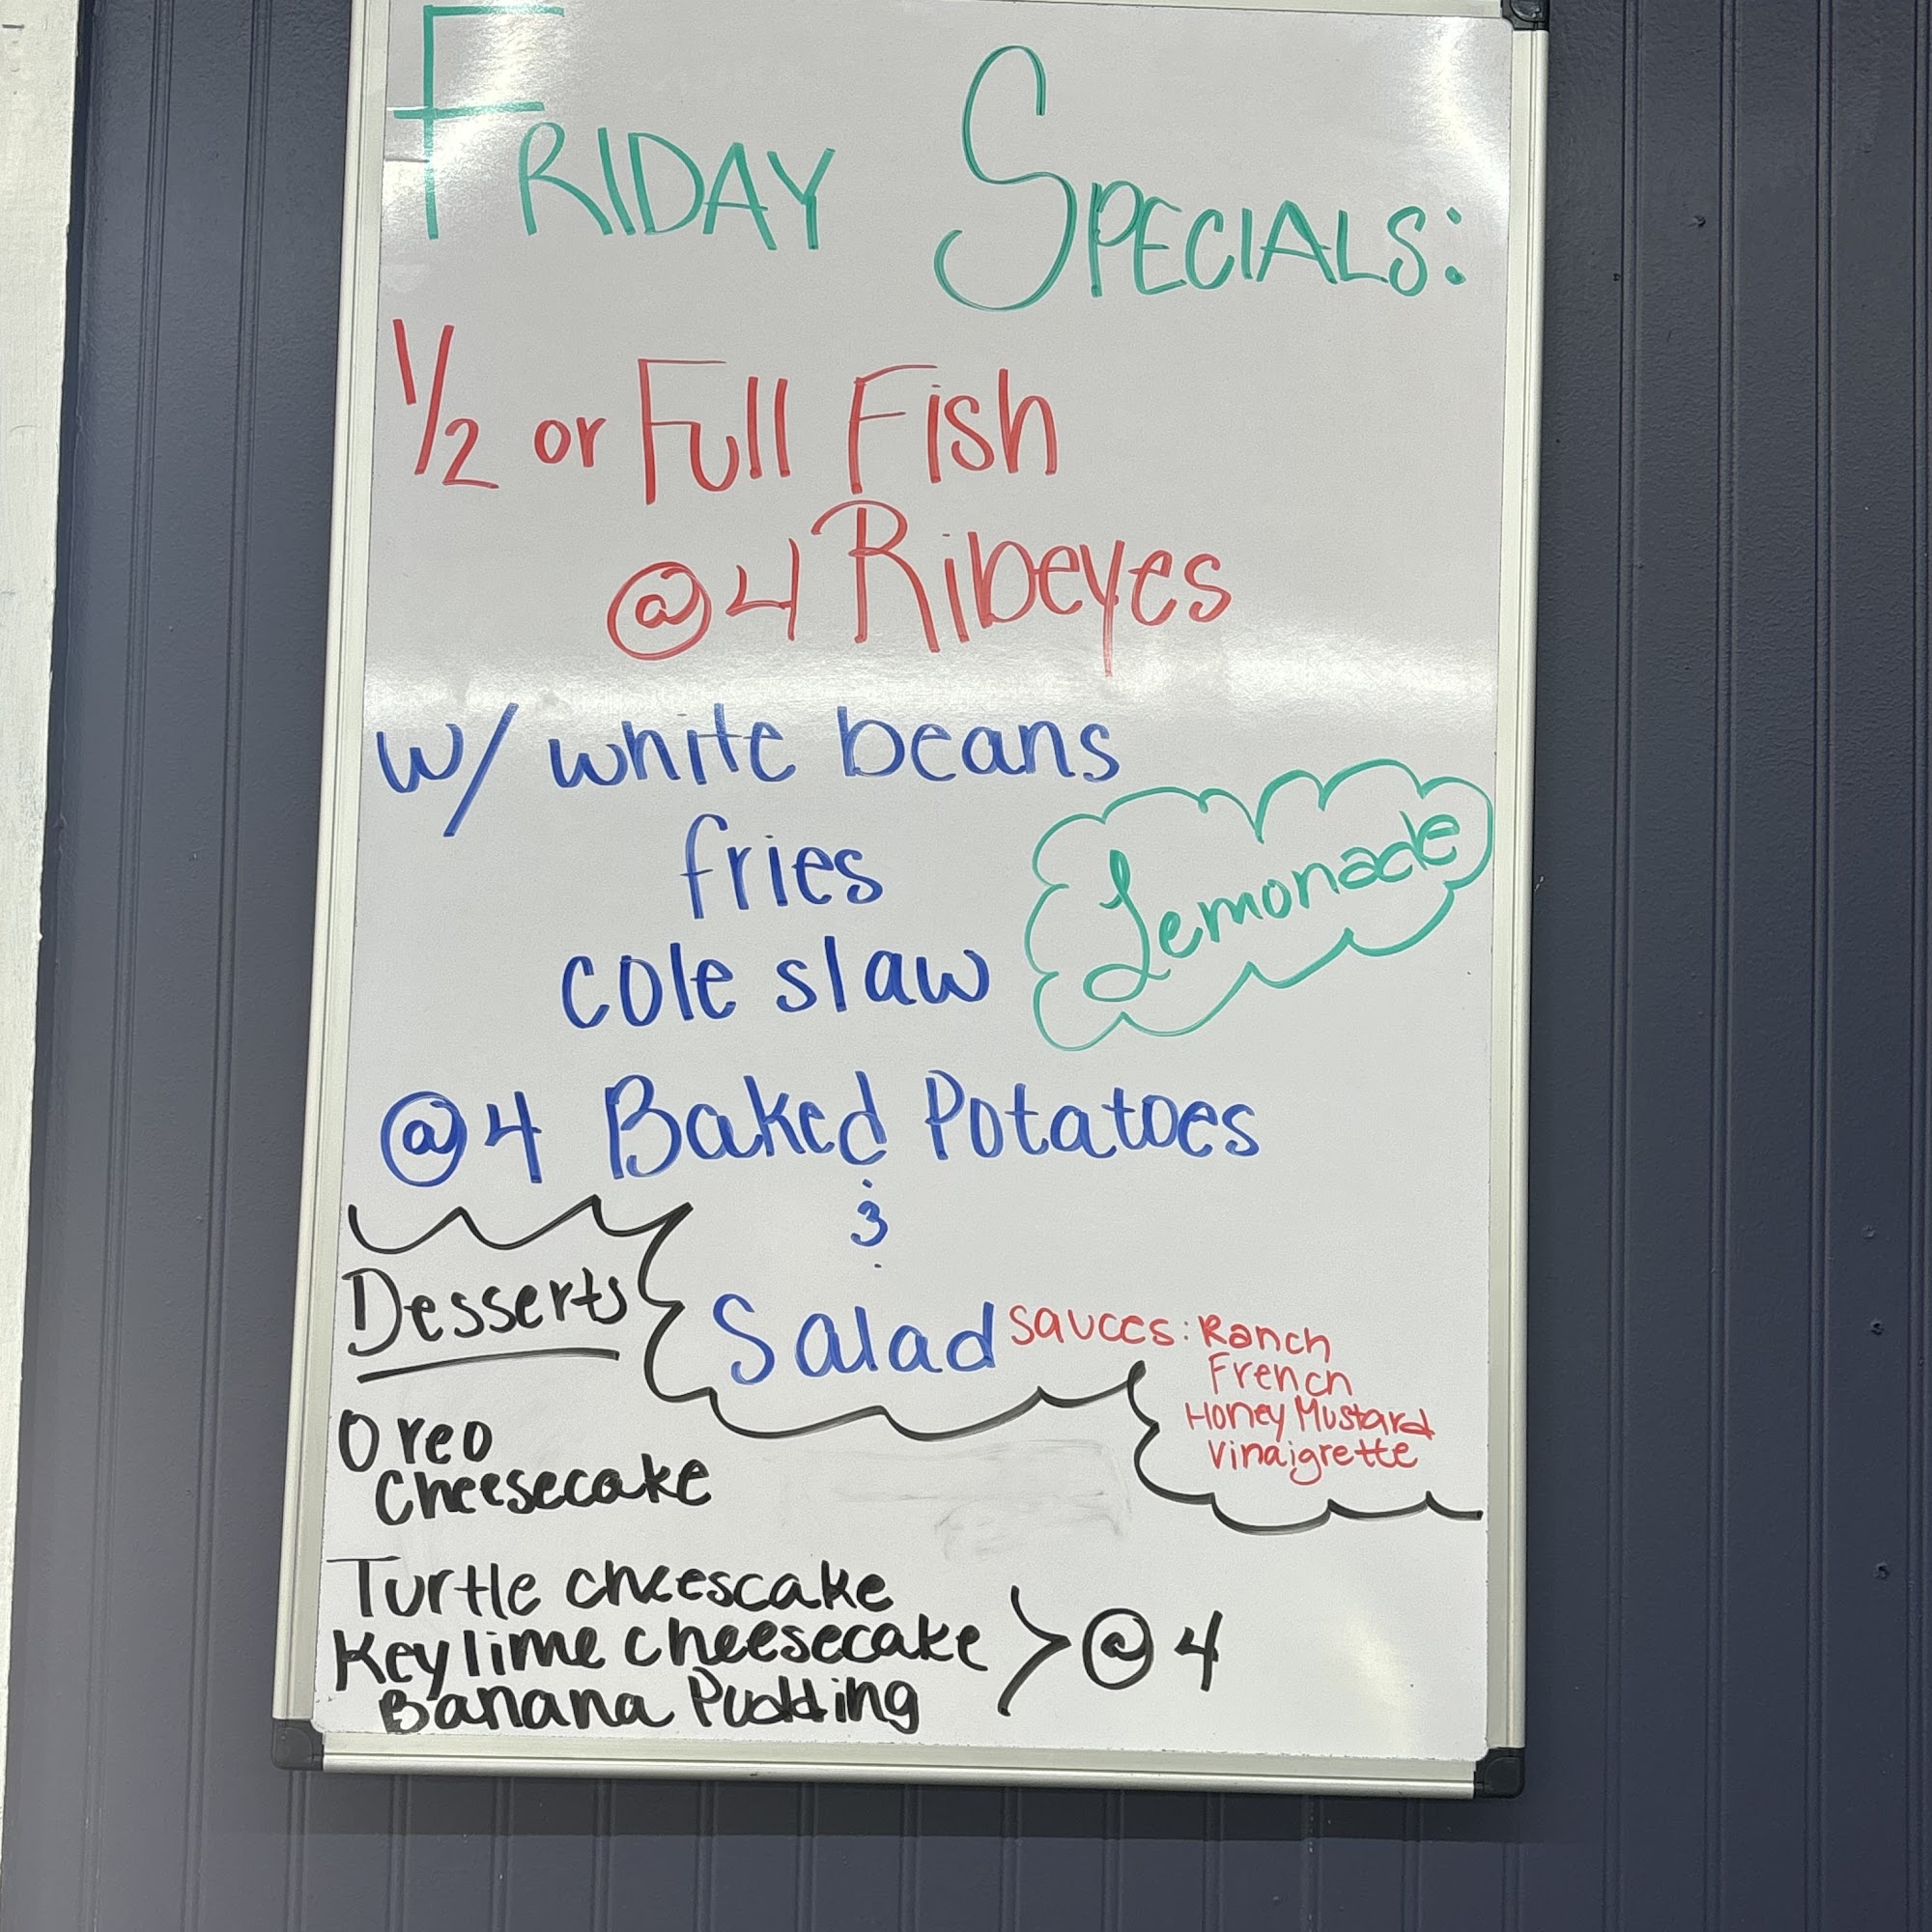 FRIDAY SPECIALS:
1/2 or Full Fish
@4 Ribeyes
w/ white beans
fries
cole slaw
Lemonade
@4 Baked Potatoes
&
Salad
Sauces: Ranch
French
Honey Mustard
Vinaigrette
Desserts
Oreo
Cheesecake
Turtle cheesecake
Key lime cheesecake > @ 4
Banana Pudding